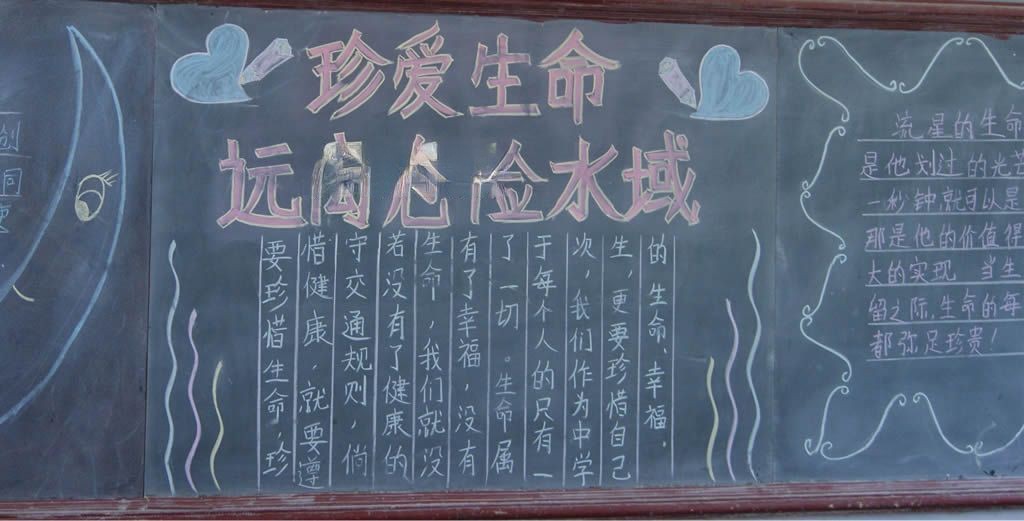 创
同
珍爱生命
远离危险水域
要珍惜生命,珍
惜健康,就要遵
守交通规则,倘
若没有了健康的
生命,我们就没
有了幸福,没有
了一切。生命属
于每个人的只有一
次,我们作为中学
生,更要珍惜自己
的生命、幸福.
流星的生命
是他划过的光芒
一秒钟就可以是
那是他的价值得
大的实现 当生
留之际,生命的每
都弥足珍贵!